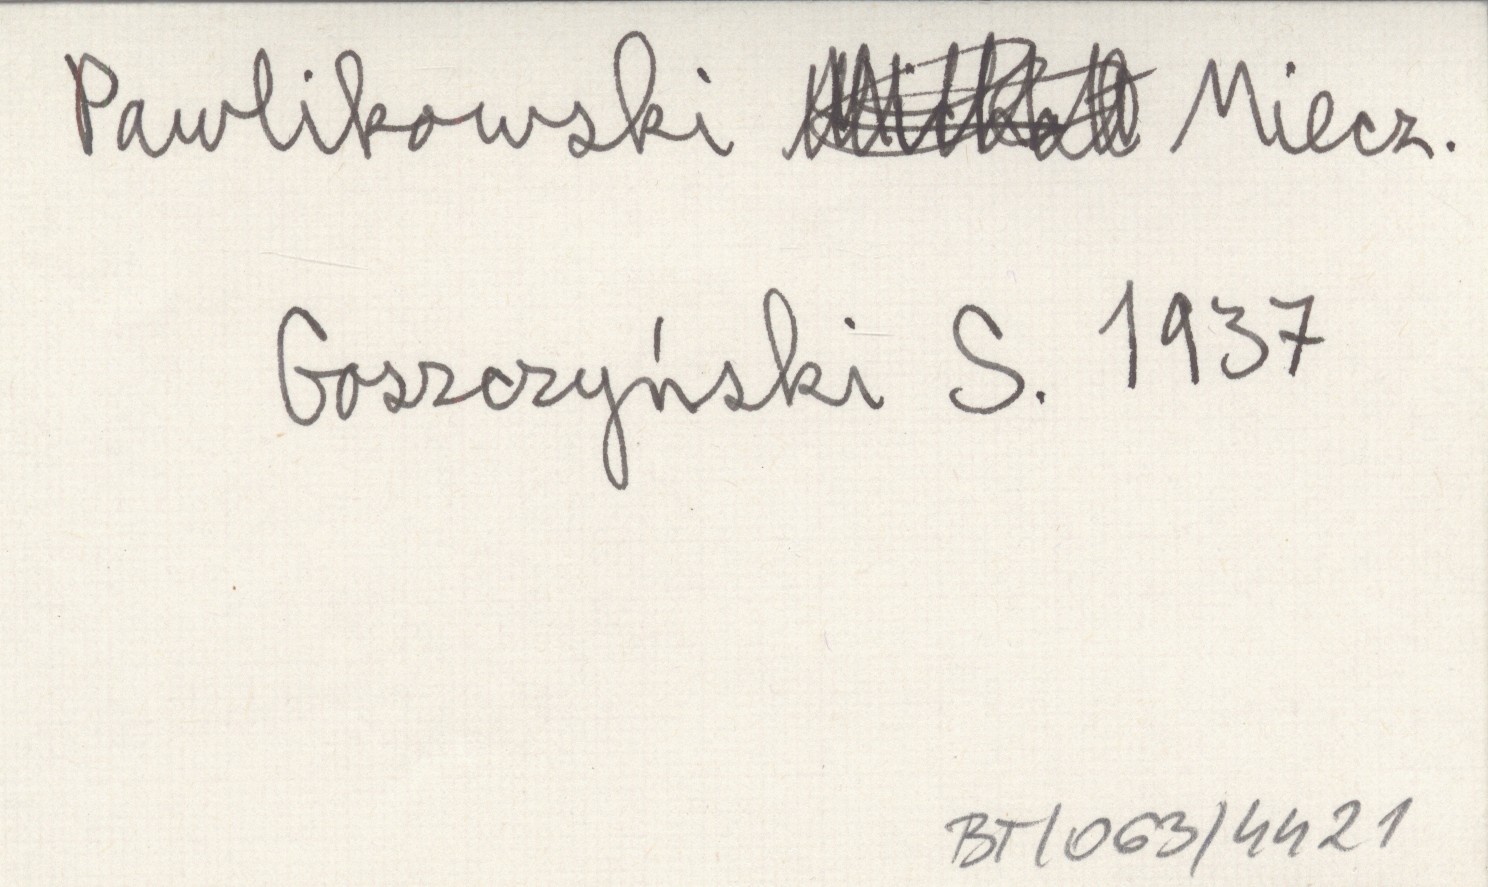 Pawlikowski Miecz.
Goszczyński S. 1937
BT/063/4421